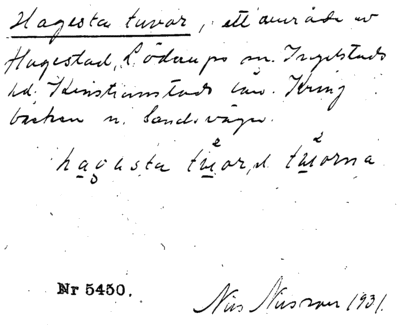 Hagesta tuvor, ett område av
Hagestad, Löderups sn. Ingelstads
hd, Kristianstads län. Kring
backen n. landsvägen.
hagesta tuor, el. tuorna
Nr 5450.
Nils Nilsson 1931.